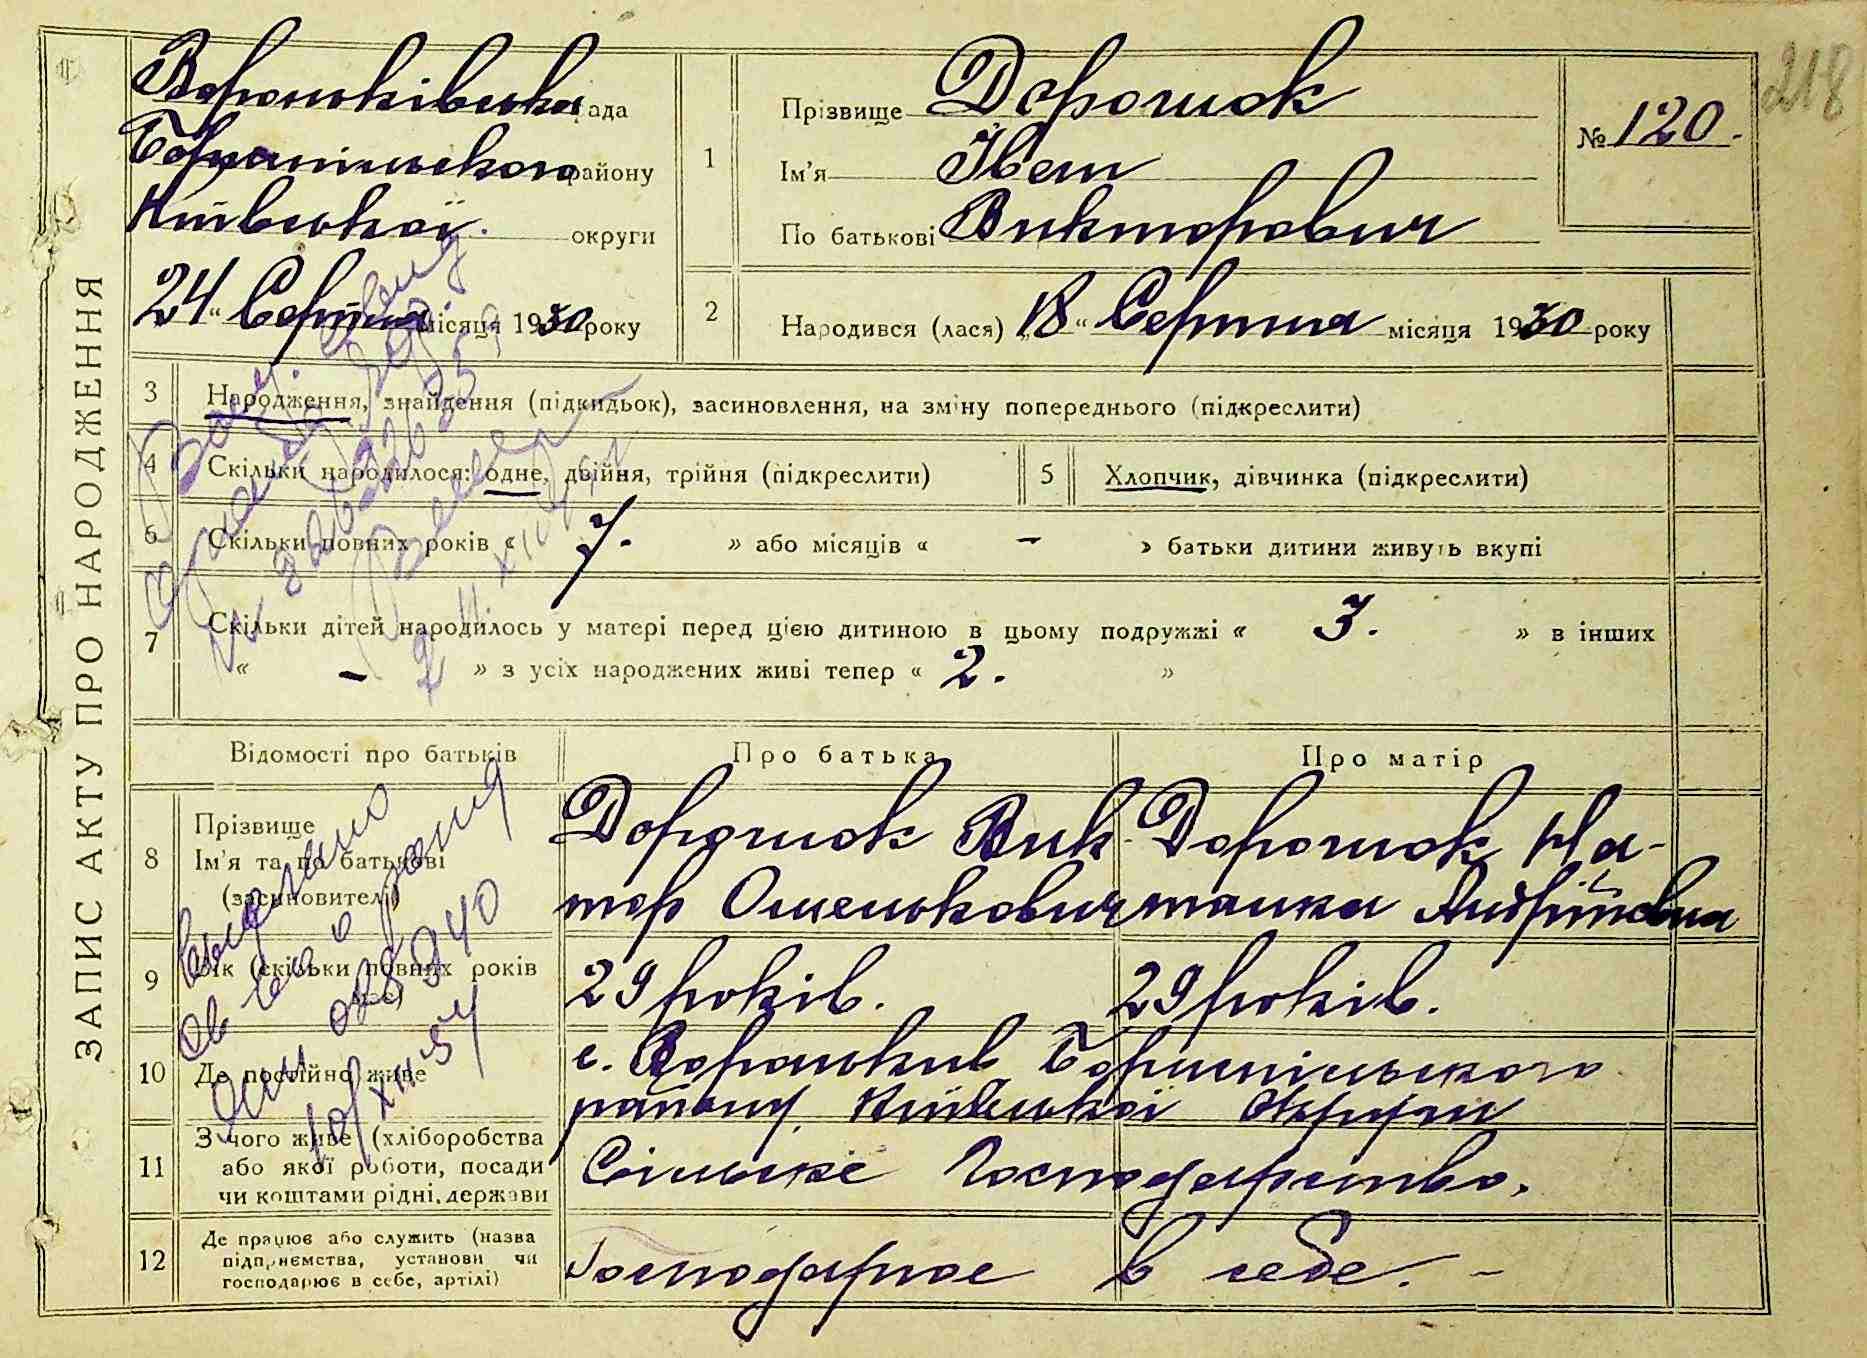 218
ЗАПИС АКТУ ПРО НАРОДЖЕННЯ
Вороньківська рада
Бориспільського району
Київської округи
24 " Серпня місяця 1930 року
1
Прізвище Дорошок
Ім'я Іван
По батькові Викторович
№ 120.
2
Народився (лася) „18 " Серпня місяця 1930 року
3 Народження, знайдення (підкидьок), засиновлення, на зміну попереднього (підкреслити)
4 Скільки народилося: одне, двійня, трійня (підкреслити)
5 Хлопчик, дівчинка (підкреслити)
6 Скільки повних років « 7. » або місяців « - » батьки дитини живуть вкупі
7 Скільки дітей народилось у матері перед цією дитиною в цьому подружжі « 3. » в інших
« - » з усіх народжених живі тепер « 2. »
Відомості про батьків
Про батька
Про матір
8 Прізвище
Ім'я та по батькові
(засиновителі)
Дорошок Вик-
тор Омелькович
Дорошок На-
талка Андріївна
9 Вік (скільки повних років
29 років.
29 років.
10 Де постійно живе
с. Вороньків Бориспільського
району, Київської Округи
11 З чого живе (хліборобства
або якої роботи, посади
чи коштами рідні, держави
Сільське Господарство.
12 Де працює або служить (назва
підприємства, установи чи
господарює в себе, артілі)
Господарює в себе. -